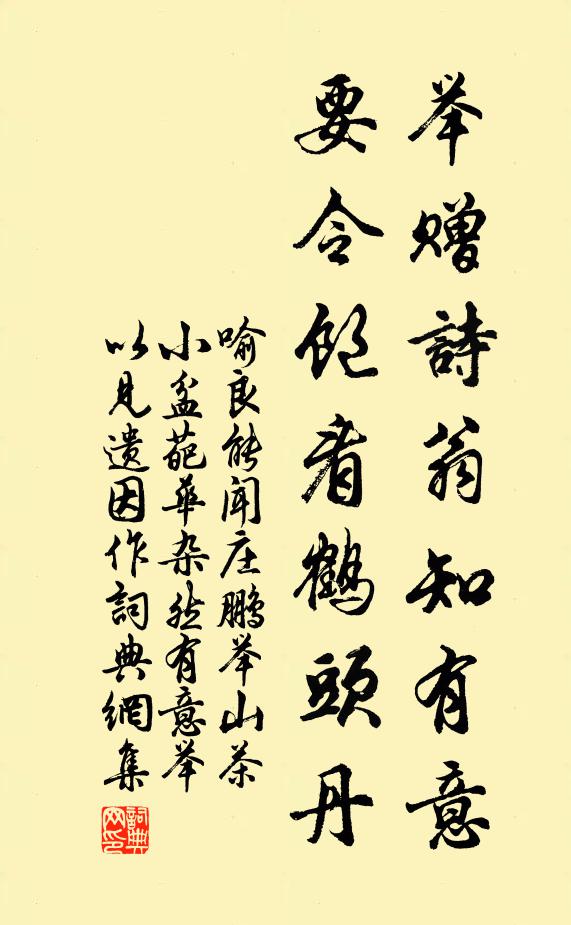 举赠詩翁知有意
要令饱看鹤頭丹
喻良能闻庄鹏举山茶
小盆葩华杂然有意举
以见遗因作詞典網集
詞典网印